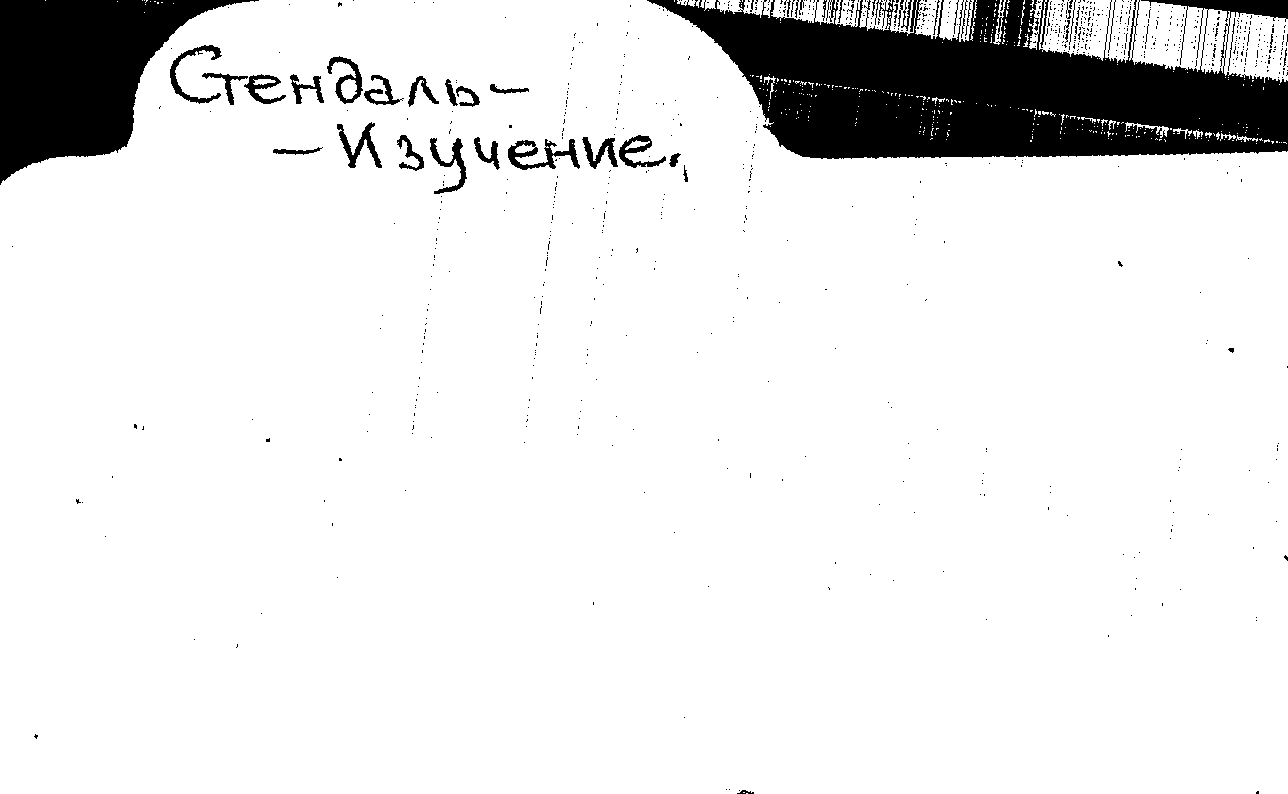 Стендаль –
– Изучение.